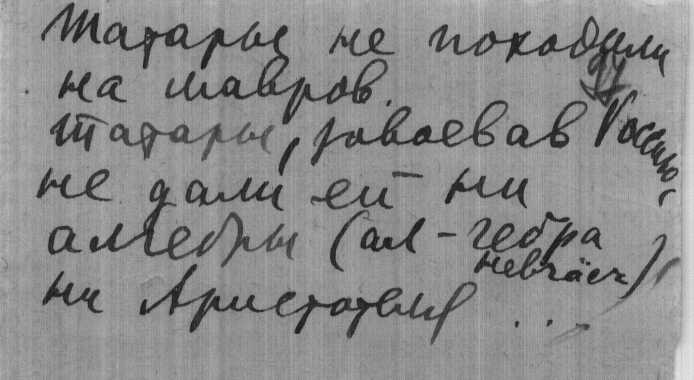 Татары не походили
на мавров.
Татары, завоевав Россию,
не дали ей ни
алгебры (ал-гебра
ни Аристотеля ...